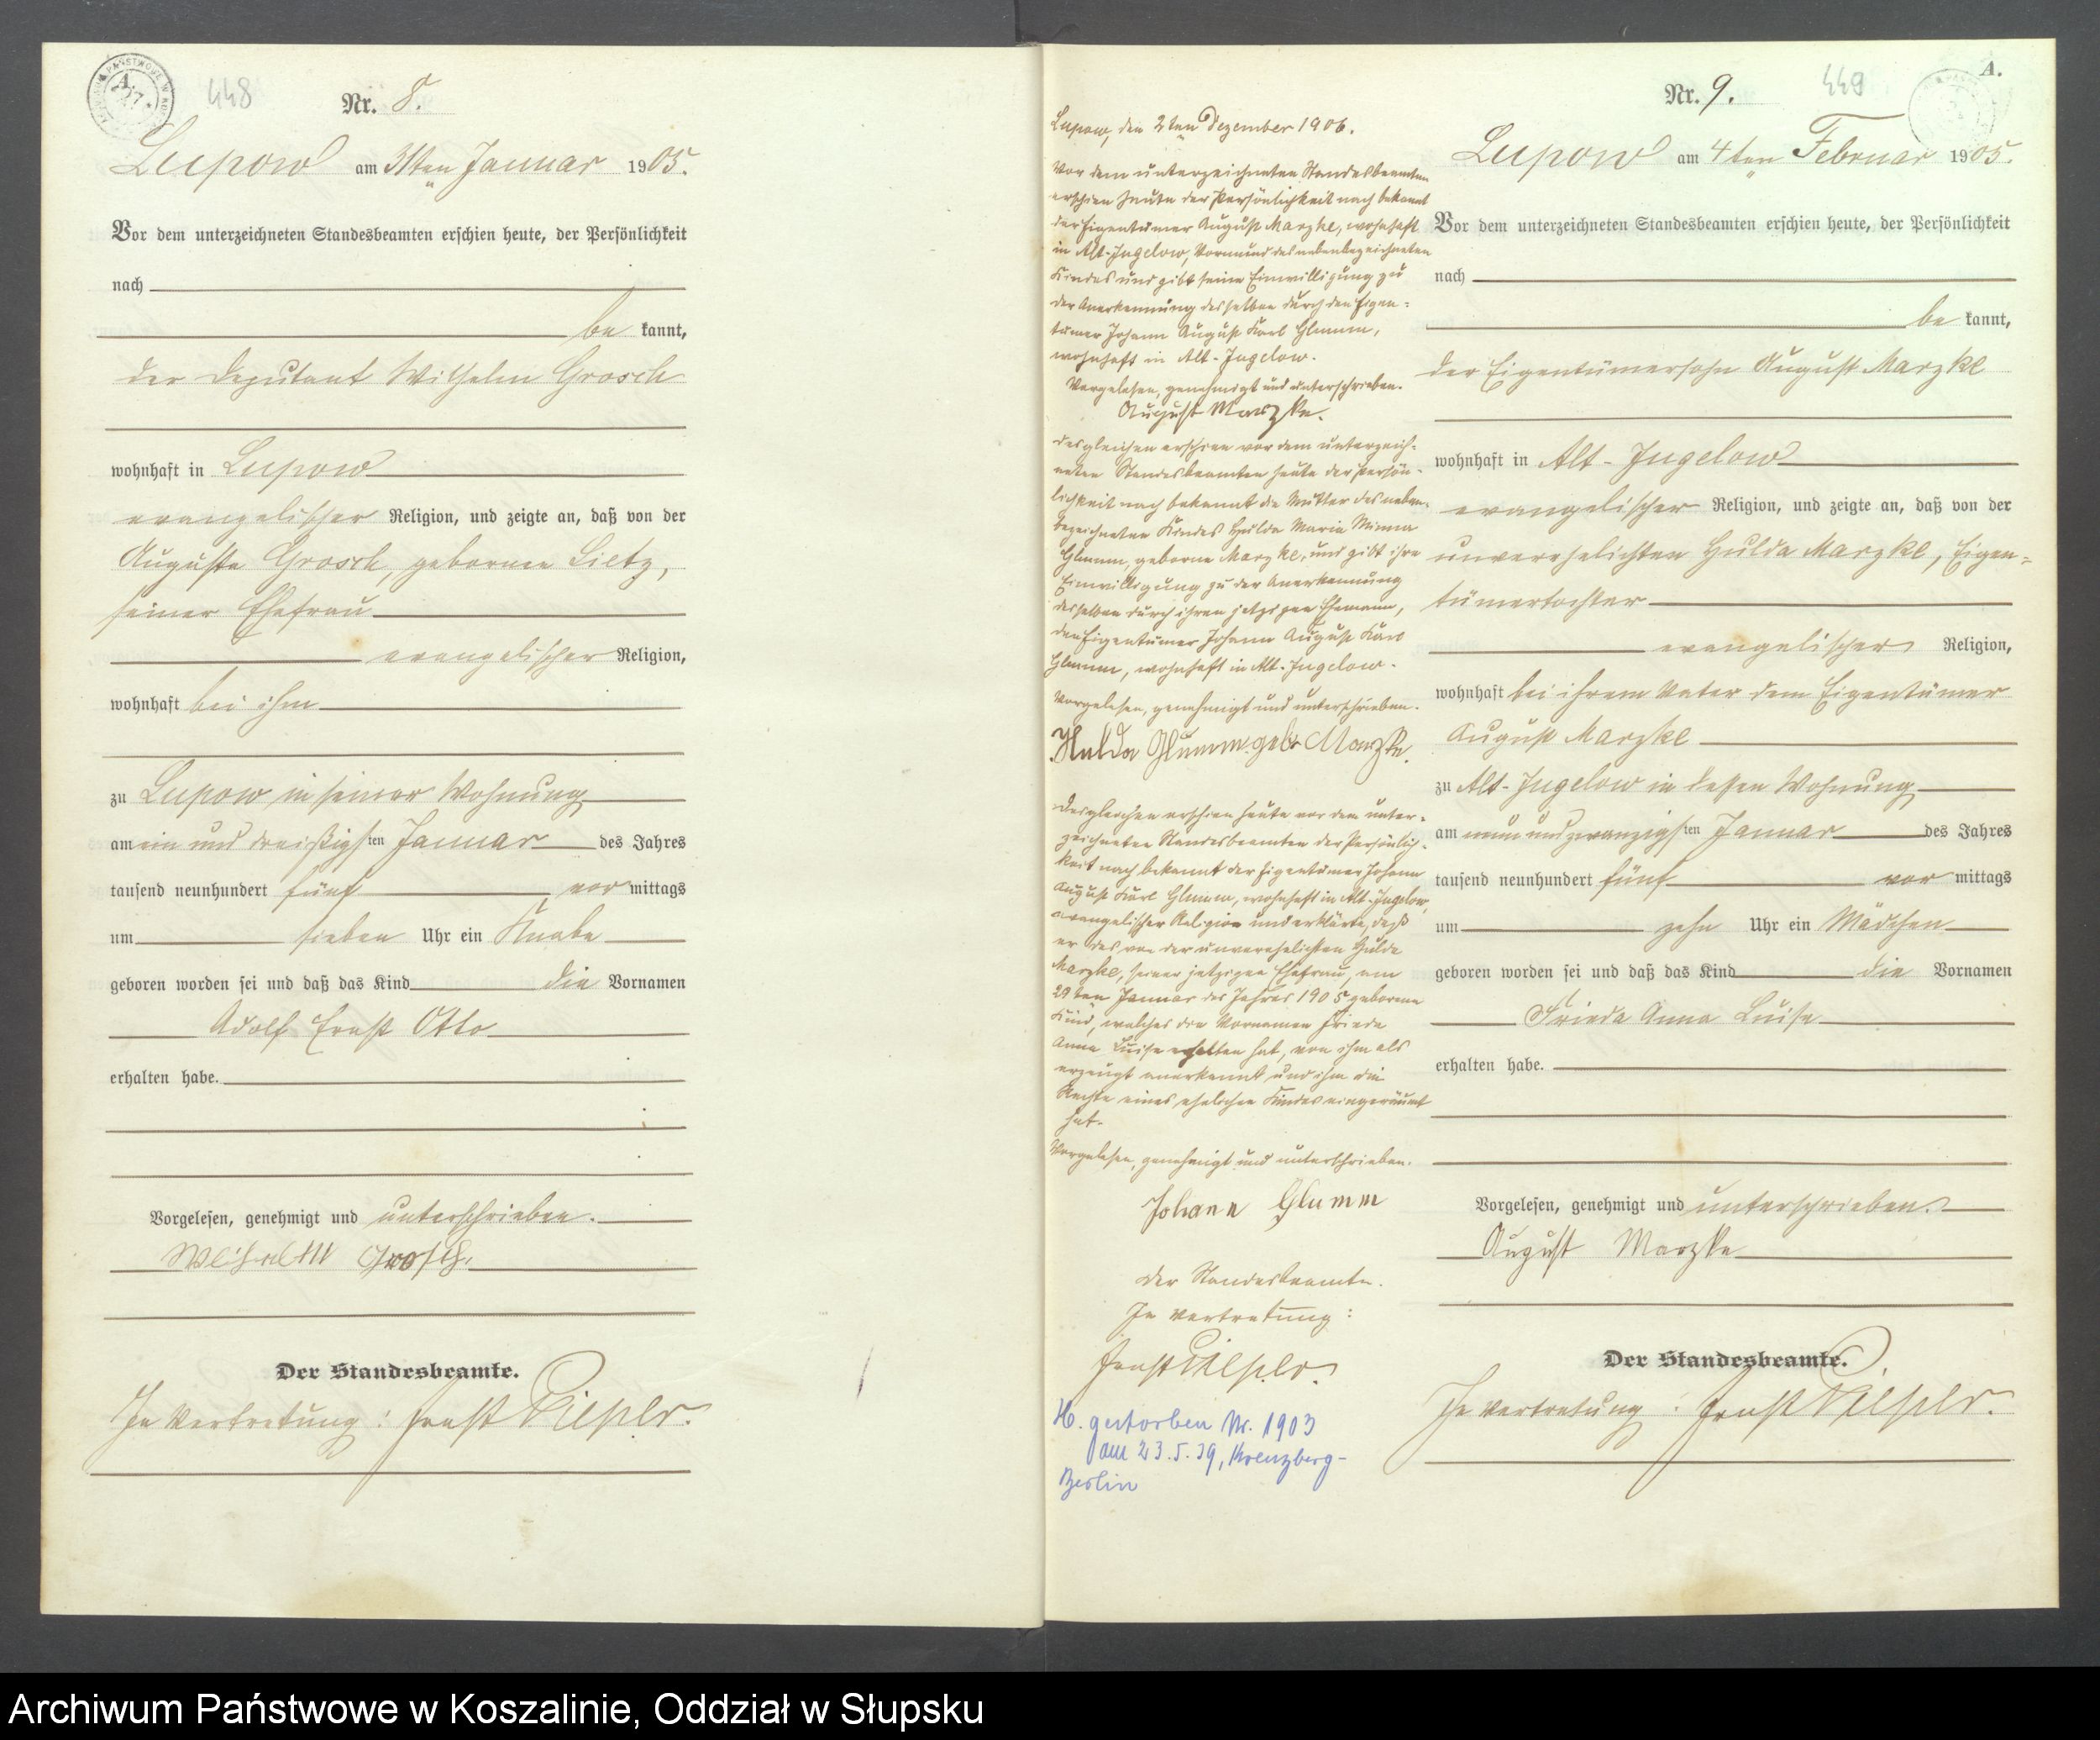 448
Nr. 8.
Lupow am 31ten Januar 1905.
Vor dem unterzeichneten Standesbeamten erschien heute, der Persönlichkeit
nach
be kannt,
der Deputant Wilhelm Grosch
wohnhaft in Lupow
evangelischer Religion, und zeigte an, daß von der
Auguste Grosch, geborenen Lietz,
seiner Ehefrau
evangelischer Religion,
wohnhaft bei ihm
zu Lupow in seiner Wohnung
am ein und dreißigsten Januar des Jahres
tausend neunhundert fünf vor mittags
um sieben Uhr ein Knabe
geboren worden sei und daß das Kind die Vornamen
Adolf Ernst Otto
erhalten habe.
Vorgelesen, genehmigt und unterschrieben.
Wilhelm Grosch.
Der Standesbeamte.
In Vertretung: Ernst
Lupow, den 2ten Dezember 1906.
Vor dem unterzeichneten Standesbeamten
erschien heute der Persönlichkeit nach bekannt
der Eigentümer August Marzke, wohnhaft
in Alt-Jugelow, Vormund des nebenbezeichneten
Kindes und gibt seine Einwilligung zu
der Anerkennung desselben durch den Eigen-
tümer Johann August Karl Glumm,
wohnhaft in Alt-Jugelow.
Vorgelesen, genehmigt und unterschrieben.
August Marzke.
Desgleichen erschien vor dem unterzeich-
neten Standesbeamten heute der Persön-
lichkeit nach bekannt die Mutter des neben-
bezeichneten Kindes Hulda Maria Minna
Glumm, geborene Marzke, und gibt ihre
Einwilligung zu der Anerkennung
desselben durch ihren jetzigen Ehemann,
den Eigentümer Johann August Karl
Glumm, wohnhaft in Alt-Jugelow.
Vorgelesen, genehmigt und unterschrieben.
Hulda Glumm geb. Marzke.
Desgleichen erschien heute vor dem unter-
zeichneten Standesbeamten der Persönlich-
keit nach bekannt der Eigentümer Johann
August Karl Glumm, wohnhaft in Alt-Jugelow,
evangelischer Religion und erklärte, daß
er das von der unverehelichten Hulda
Marzke, seiner jetzigen Ehefrau, am
29ten Januar des Jahres 1905 geborene
Kind, welches die Vornamen Frieda
Anna Luise erhalten hat, von ihm als
erzeugt anerkannt und ihm die
Rechte eines ehelichen Kindes eingeräumt
hat.
Vorgelesen, genehmigt und unterschrieben.
Johann Glumm
Der Standesbeamte.
In Vertretung:
Ernst
H. gestorben Nr. 1903
am 23.5.39, Kreuzberg-
Berlin
A.
449
Nr. 9.
Lupow am 4ten Februar 1905.
Vor dem unterzeichneten Standesbeamten erschien heute, der Persönlichkeit
nach
be kannt,
der Eigentümersohn August Marzke
wohnhaft in Alt-Jugelow
evangelischer Religion, und zeigte an, daß von der
unverehelichten Hulda Marzke, Eigen-
tümertochter
evangelischer Religion,
wohnhaft bei ihrem Vater dem Eigentümer
August Marzke
zu Alt-Jugelow in dessen Wohnung
am neun und zwanzigsten Januar des Jahres
tausend neunhundert fünf vor mittags
um zehn Uhr ein Mädchen
geboren worden sei und daß das Kind die Vornamen
Frieda Anna Luise
erhalten habe.
Vorgelesen, genehmigt und unterschrieben.
August Marzke
Der Standesbeamte.
In Vertretung: Ernst
Archiwum Państwowe w Koszalinie, Oddział w Słupsku